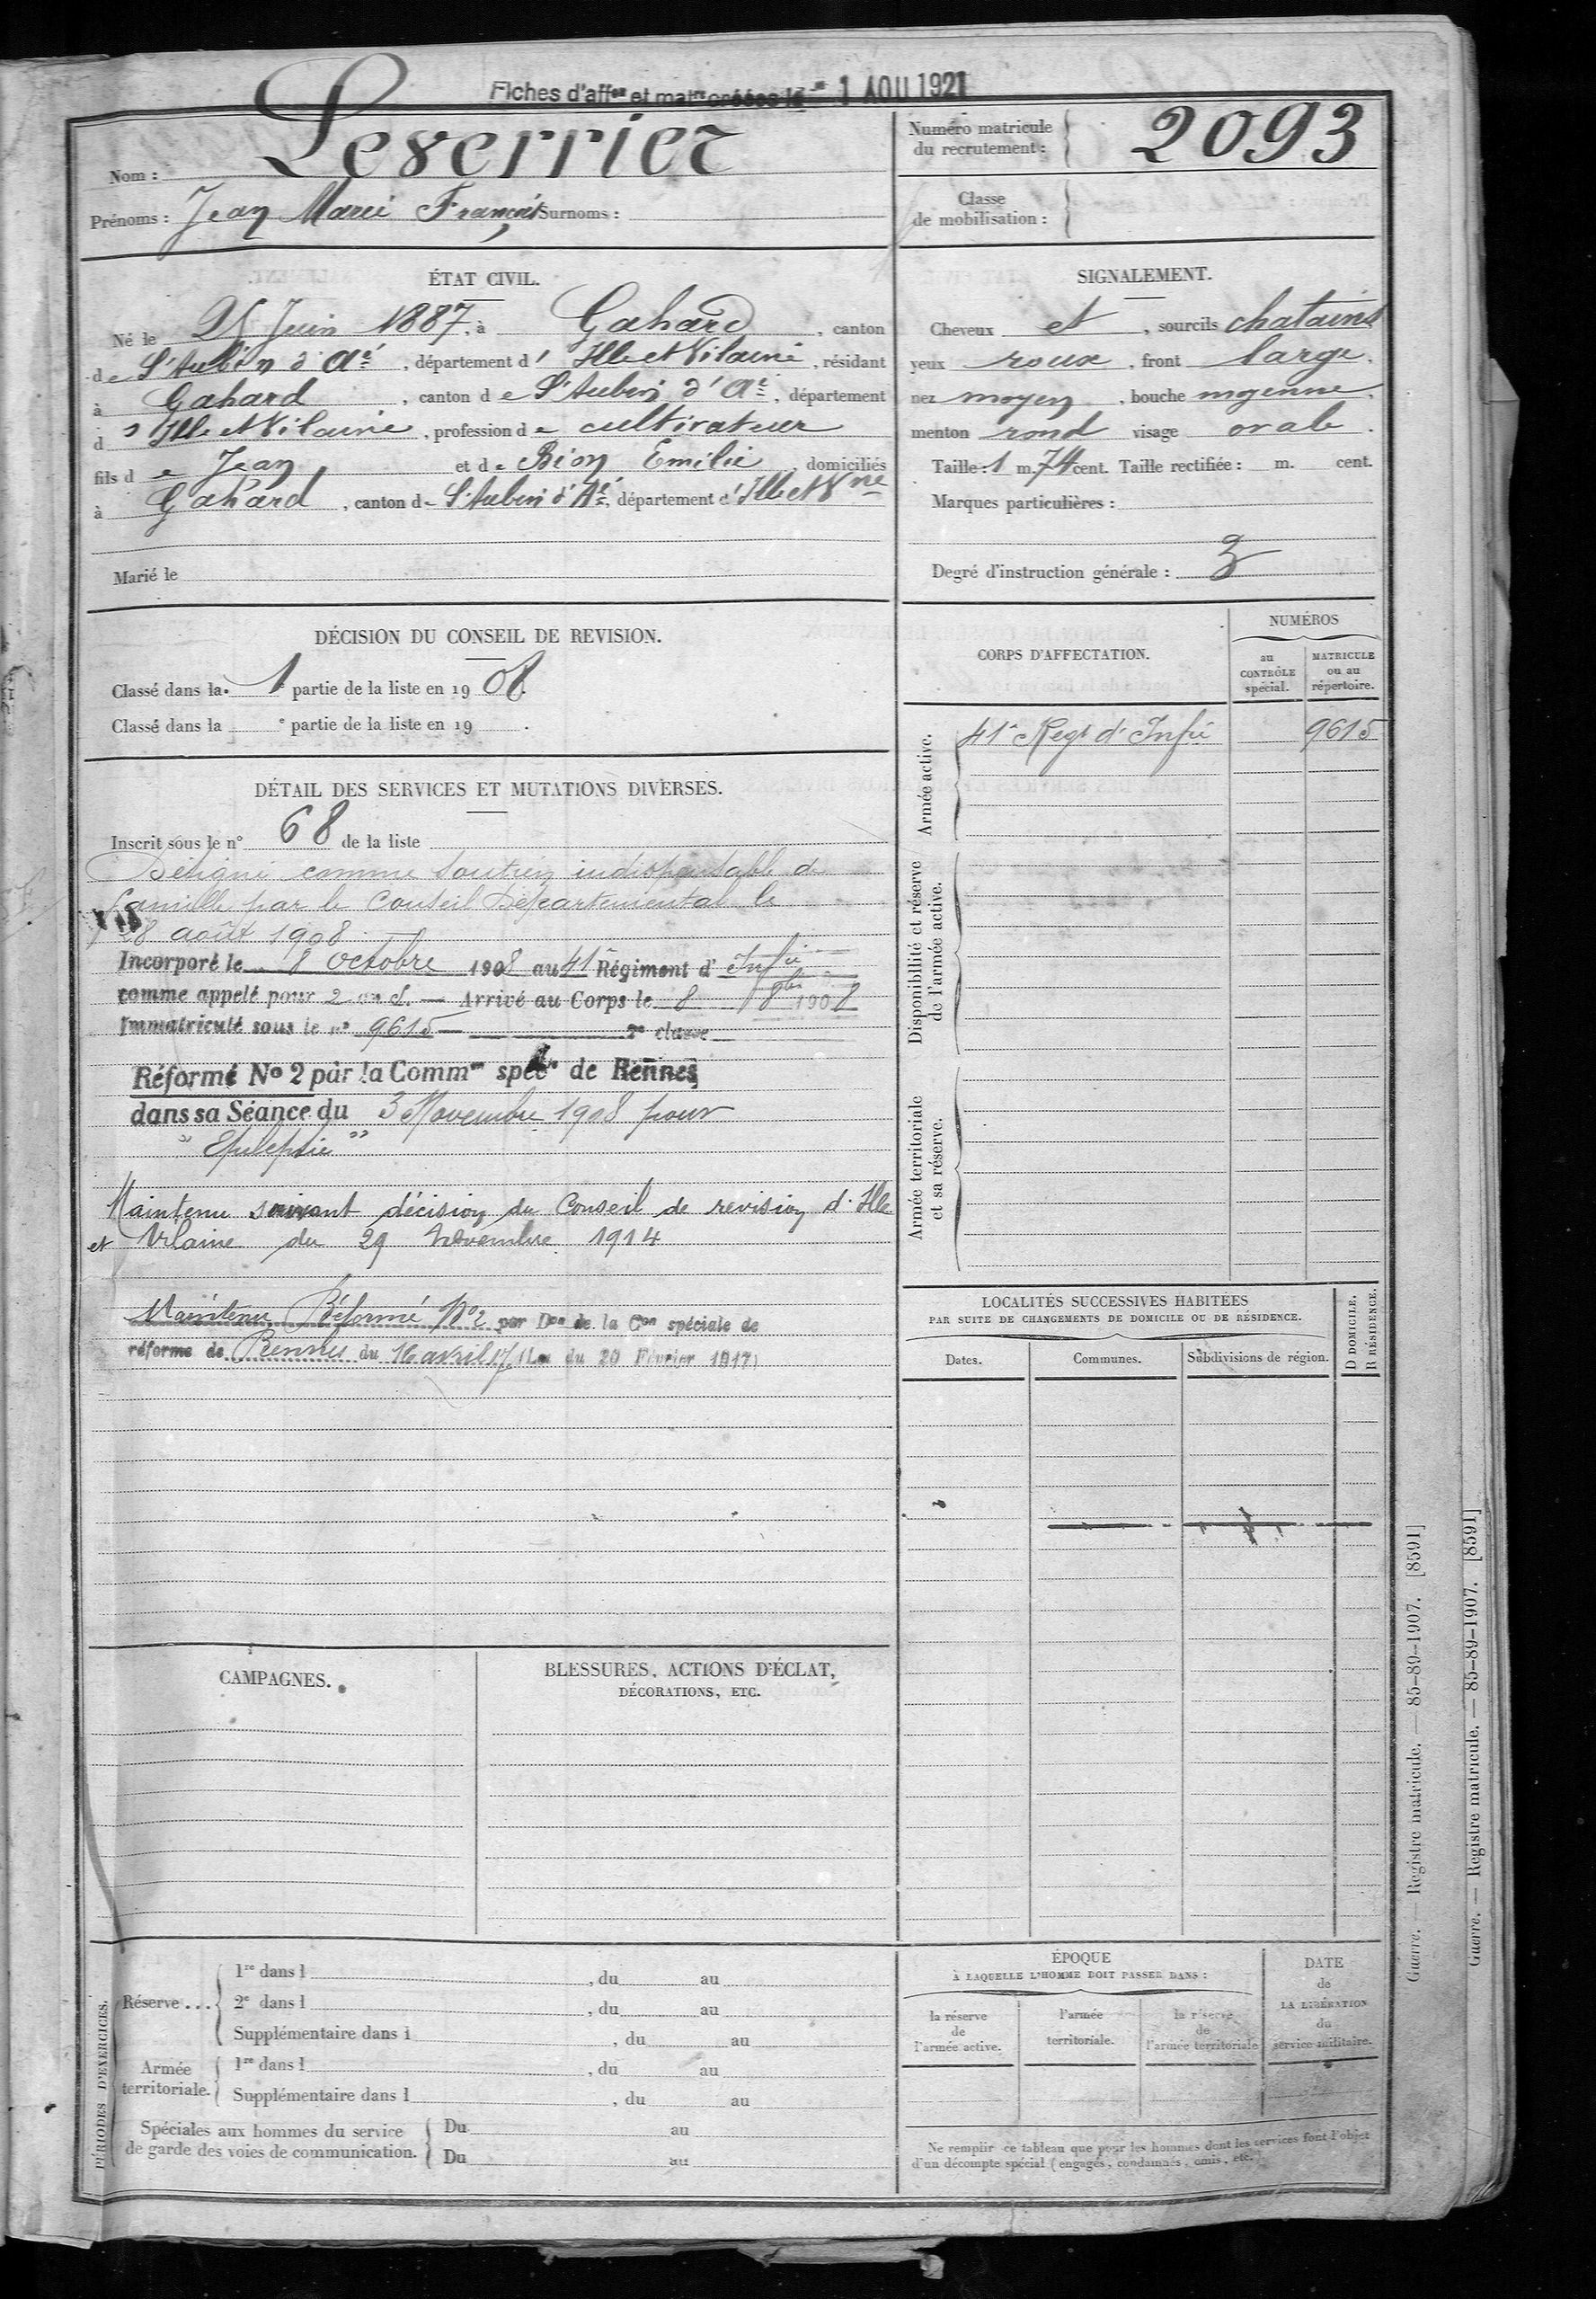 Fiches d'affon et matre créées le 1 AOU 1921
Nom : Leverrier
Numéro matricule du recrutement : 2093
Prénoms : Jean Marie François Surnoms :
Classe de mobilisation :
ÉTAT CIVIL.
Né le 25 Juin 1887, à Gahard, canton
de St Aubin d'Aé, département d'Ille et Vilaine, résidant
à Gahard, canton de St Aubin d'Aé, département
d'Ille et Vilaine, profession de cultivateur
fils de Jean et de Bion Emilie, domiciliés
à Gahard, canton de St Aubin d'Aé, département d'Ille et Vne
Marié le
SIGNALEMENT.
Cheveux et, sourcils chatains
yeux roux, front large,
nez moyen, bouche moyenne,
menton rond visage ovale.
Taille : 1 m. 74 cent. Taille rectifiée : m. cent.
Marques particulières :
Degré d'instruction générale : 3
DÉCISION DU CONSEIL DE REVISION.
Classé dans la 1e partie de la liste en 1908.
Classé dans la e partie de la liste en 19 .
DÉTAIL DES SERVICES ET MUTATIONS DIVERSES.
Inscrit sous le n° 68 de la liste
Désigné comme soutien indispensable de
famille par le Conseil Départemental le
28 août 1908
Incorporé le 8 octobre 1908 au 41e Régiment d'Infie
comme appelé pour 2 ans. Arrivé au Corps le 8 8bre 1908
Immatriculé sous le n° 9615 2e classe
Réformé No 2 par la Common spéle de Rennes
dans sa Séance du 3 Novembre 1908 pour
"Epilepsie"
Maintenu suivant décision du Conseil de revision d'Ille
et Vilaine du 29 Novembre 1914
Maintenu Réformé No 2 par Don de la Con spéciale de
réforme de Rennes du 16 avril 17 (Loi du 20 Février 1917)
CORPS D'AFFECTATION.
NUMÉROS
au CONTRÔLE spécial.
MATRICULE ou au répertoire.
Armée active.
41e Regt d'Infie 9615
Disponibilité et réserve de l'armée active.
Armée territoriale et sa réserve.
LOCALITÉS SUCCESSIVES HABITÉES
PAR SUITE DE CHANGEMENTS DE DOMICILE OU DE RÉSIDENCE.
D DOMICILE.
R RÉSIDENCE.
Dates. Communes. Subdivisions de région.
CAMPAGNES.
BLESSURES, ACTIONS D'ÉCLAT,
DÉCORATIONS, ETC.
PÉRIODES D'EXERCICES.
Réserve...
1re dans l , du au
2e dans l , du au
Supplémentaire dans l , du au
Armée territoriale.
1re dans l , du au
Supplémentaire dans l , du au
Spéciales aux hommes du service
de garde des voies de communication.
Du au
Du au
ÉPOQUE
À LAQUELLE L'HOMME DOIT PASSER DANS :
la réserve de l'armée active.
l'armée territoriale.
la réserve de l'armée territoriale
DATE de LA LIBÉRATION du service militaire.
Ne remplir ce tableau que pour les hommes dont les services font l'objet
d'un décompte spécial (engagés, condamnés, omis, etc.)
Guerre. — Registre matricule. — 85-89-1907. [8591]
Guerre. — Registre matricule. — 85-89-1907. [8591]